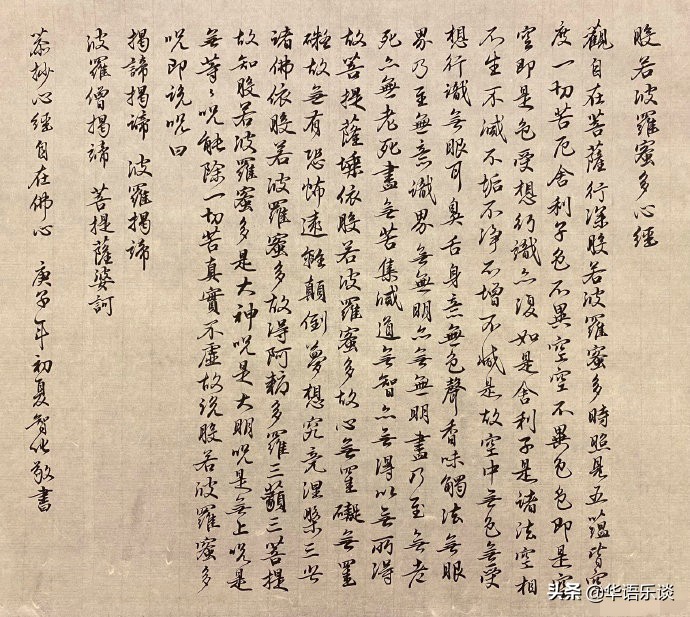 般若波羅蜜多心經
觀自在菩薩行深般若波羅蜜多時照見五蘊皆空
度一切苦厄舍利子色不異空空不異色色即是空
空即是色受想行識亦復如是舍利子是諸法空相
不生不滅不垢不净不增不減是故空中無色無受
想行識無眼耳鼻舌身意無色聲香味觸法無眼
界乃至無意識界無無明亦無無明盡乃至無老
死亦無老死盡無苦集滅道無智亦無得以無所得
故菩提薩埵依般若波羅蜜多故心無罣礙無罣
礙故無有恐怖遠離顛倒夢想究竟涅槃三世
諸佛依般若波羅蜜多故得阿耨多羅三藐三菩提
故知般若波羅蜜多是大神咒是大明咒是無上咒是
無等等咒能除一切苦真實不虛故説般若波羅蜜多
咒即説咒曰
揭諦揭諦 波羅揭諦
波羅僧揭諦 菩提薩婆訶
恭抄心經自在佛心 庚子年初夏智化敬書
头条 @华语乐谈